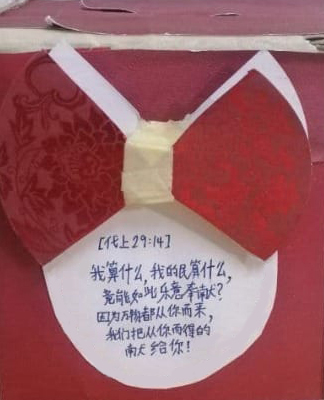 [代上29:14]
我算什么,我的民算什么,
竟能如此乐意奉献?
因为万物都从你而来,
我们把从你而得的
献给你!